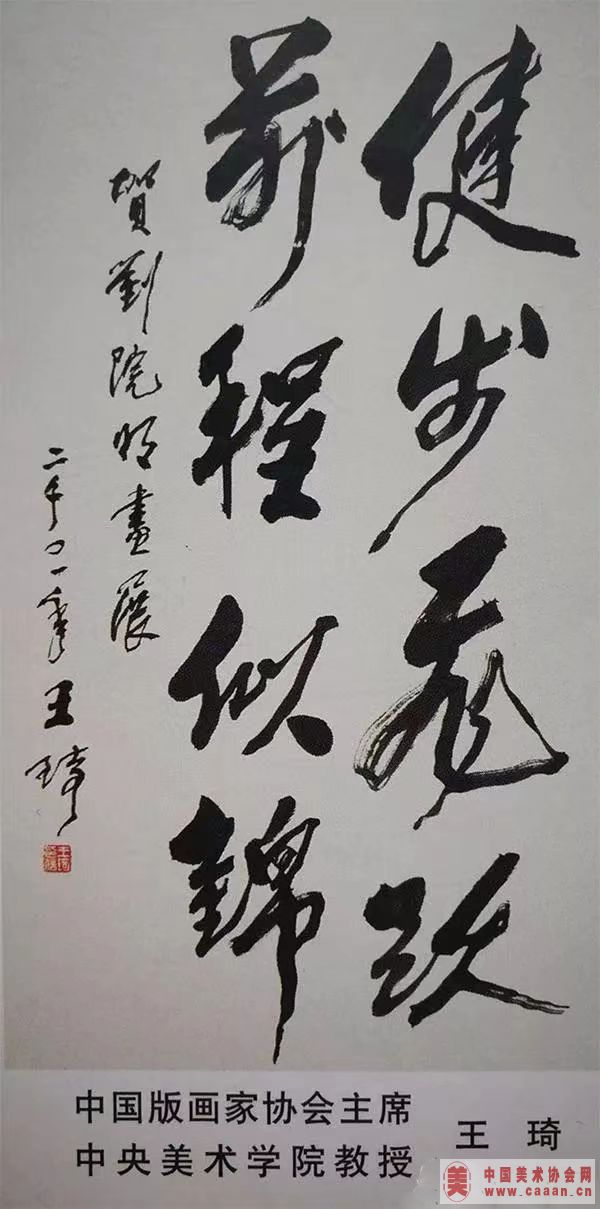 健步飛跃
前程似錦
賀劉院明畫展
二千〇一年王琦
中国版画家协会主席
中央美术学院教授
王 琦
美 中国美术协会网
www.caaan.cn